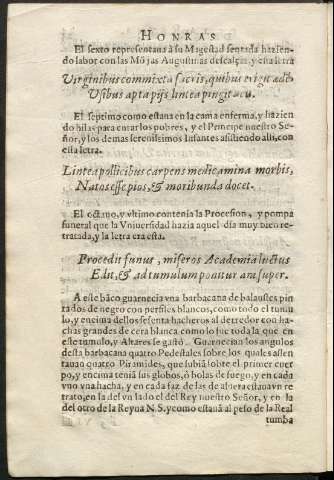 HONRAS
El sexto representaua à su Magestad sentada hazien-
do labor con las Mõjas Augustinas descalças, y esta letra
Virginibus commixta sacris, quibus erigit aedē
Vsibus apta pijs lintea pingit acu.
El septimo como estaua en la cama enferma, y hazien
do hilas para curar los pobres, y el Principe nuestro Se-
ñor, y los demas serenissimos Infantes assistiendo alli, con
esta letra.
Lintea pollicibus carpens medicamina morbis,
Natos esse pios, & moribunda docet.
El octauo, y vltimo contenia la Procession, y pompa
funeral que la Vniuersidad hazia aquel dia muy bien re-
tratada, y la letra era esta.
Procedit funus, miseros Academia luctus
Edit, & ad tumulum ponitur ara super.
A este bãco guarnecia vna barbacana de balaustes pin
tados de negro con perfiles blancos, como todo el tumu
lo, y encima dellos sesenta hacheros al derredor con ha-
chas grandes de cera blanca como lo fue toda la que en
este tumulo, y Altares se gastò. Guarnecian los angulos
desta barbacana quatro Pedestales sobre los quales assen
tauan quatro Piramides, que subiã sobre el primer cuer
po, y encima teniã sus globos, ò bolas de fuego, y en cada
vno vna hacha, y en cada faz de las de afuera estaua vn re
trato, en la del vn lado el del Rey nuestro Señor, y en la
del otro de la Reyna N. S. y como estauã al peso de la Real
tumba